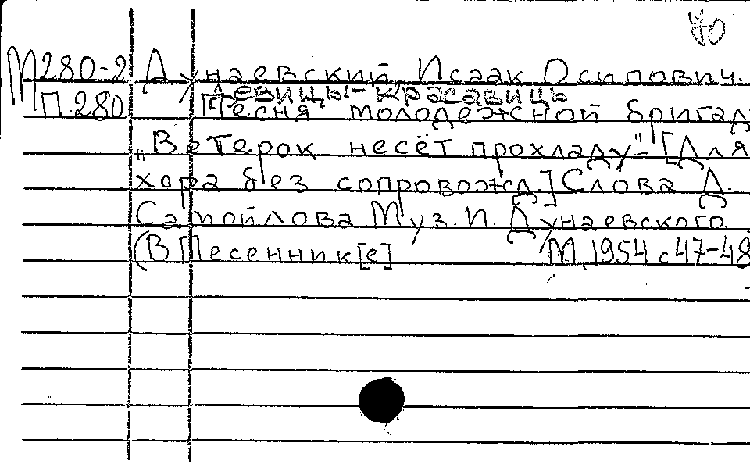 70
М280-2 Дунаевский, Исаак Осипович.
Девицы-красавицы
П.280 Песня молодежной бригад
„Ветерок несёт прохладу"- [Для
хора без сопровожд.] Слова Д.
Самойлова Муз. И. Дунаевского.
(В Песенник[е] М, 1954 с 47-48